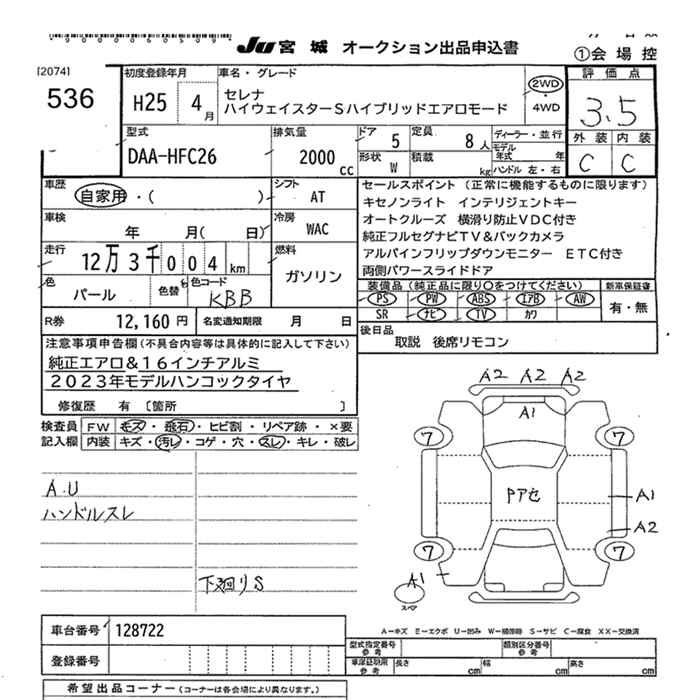 JU 宮城 オークション出品申込書
①会場控
[2074]
536
初度登録年月
H25 4月
車名・グレード
セレナ
ハイウェイスターSハイブリッドエアロモード
2WD
・4WD
評価点
3.5
外装 内装
C C
型式
DAA-HFC26
排気量
2000cc
ドア 5
定員 8人
形状 W
積載 kg
ディーラー・並行
モデル年式 年
ハンドル 左・右
車歴
自家用・( )
シフト AT
車検
年 月( 日)
冷房 WAC
走行
12万3千004km
燃料
ガソリン
色 パール
色替
色コード KBB
R券 12,160円
名変通知期限 月 日
セールスポイント (正常に機能するものに限ります)
キセノンライト インテリジェントキー
オートクルーズ 横滑り防止VDC付き
純正フルセグナビTV&バックカメラ
アルパインフリップダウンモニター ETC付き
両側パワースライドドア
装備品(純正品に限り○をつけてください)
PS PW ABS エアB AW
SR ナビ TV カワ
新車保証書
有・無
後日品
取説 後席リモコン
注意事項申告欄(不具合内容等は具体的に記入して下さい)
純正エアロ&16インチアルミ
2023年モデルハンコックタイヤ
修復歴 有 〔箇所 〕
検査員記入欄
FW キズ・飛石・ヒビ割・リペア跡・×要
内装 キズ・汚レ・コゲ・穴・スレ・キレ・破レ
A.U
ハンドルスレ
下廻りS
A2 A2 A2
A1
7 7
Pアセ
A1
A2
7 7
A1
スペア
A-キズ E-エクボ U-凹み W-補修跡 S-サビ C-腐食 XX-交換済
車台番号 128722
登録番号
型式指定番号 参考
類別区分番号 参考
車庫証明用 参考
長さ cm 幅 cm 高さ cm
希望出品コーナー(コーナーは各会場により異なります。)